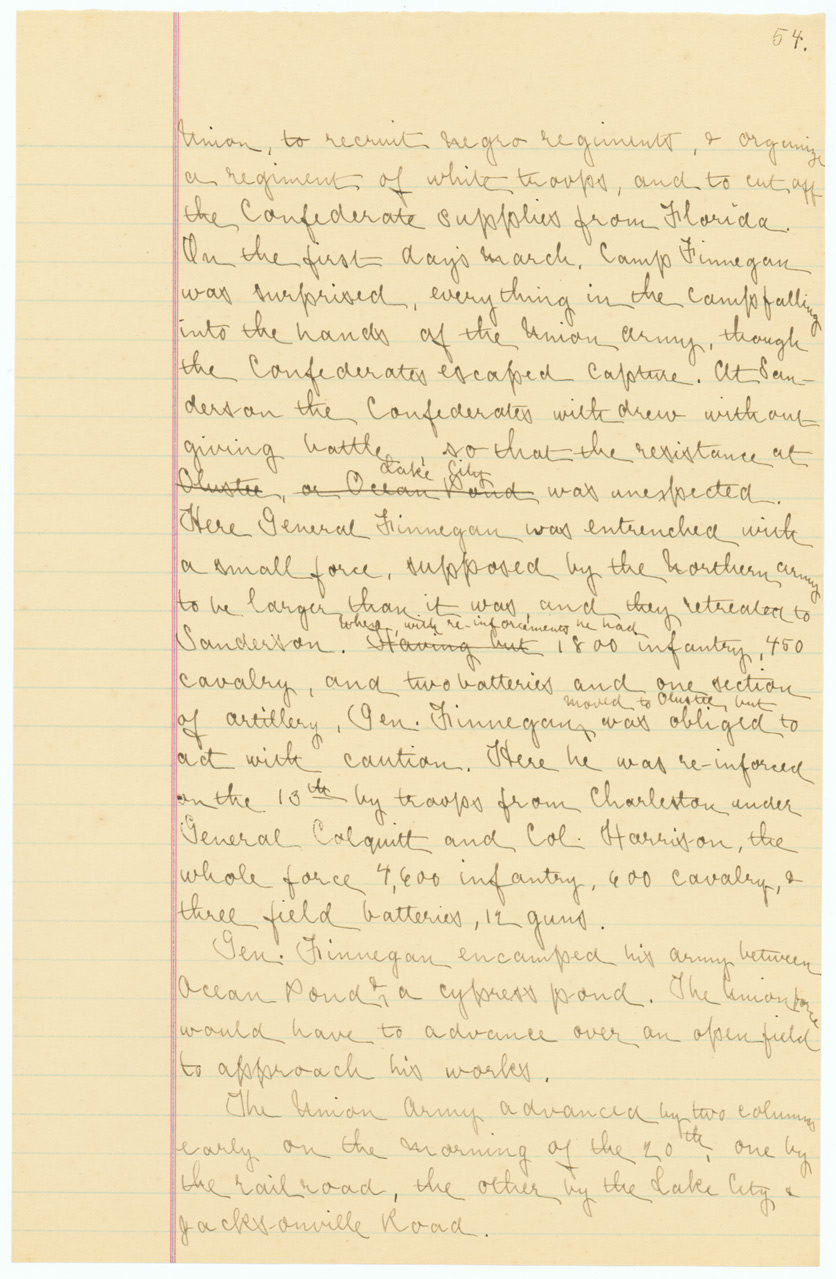 54.
Union, to recruit negro regiments, & organize
a regiment of white troops, and to cut off
the Confederate supplies from Florida.
On the first day's march, Camp Finnegan
was surprised, everything in the camp falling
into the hands of the Union army, though
the Confederates escaped capture. At San-
derson the Confederates withdrew without
giving battle, so that the resistance at
Lake City
Olustee, or Ocean Pond was unexpected.
Here General Finnegan was entrenched with
a small force, supposed by the Northern army
to be larger than it was, and they retreated to
where, with re-inforcements he had
Sanderson. Having but 1800 infantry, 450
cavalry, and two batteries and one section
moved to Olustee, but
of artillery, Gen. Finnegan was obliged to
act with caution. Here he was re-inforced
on the 13th by troops from Charleston under
General Colquitt and Col. Harrison, the
whole force 4,600 infantry, 600 cavalry, &
three field batteries, 12 guns.
Gen. Finnegan encamped his army between
Ocean Pond & a cypress pond. The Union force
would have to advance over an open field
to approach his works.
The Union Army advanced by two columns
early on the morning of the 20th, one by
the railroad, the other by the Lake City &
Jacksonville Road.